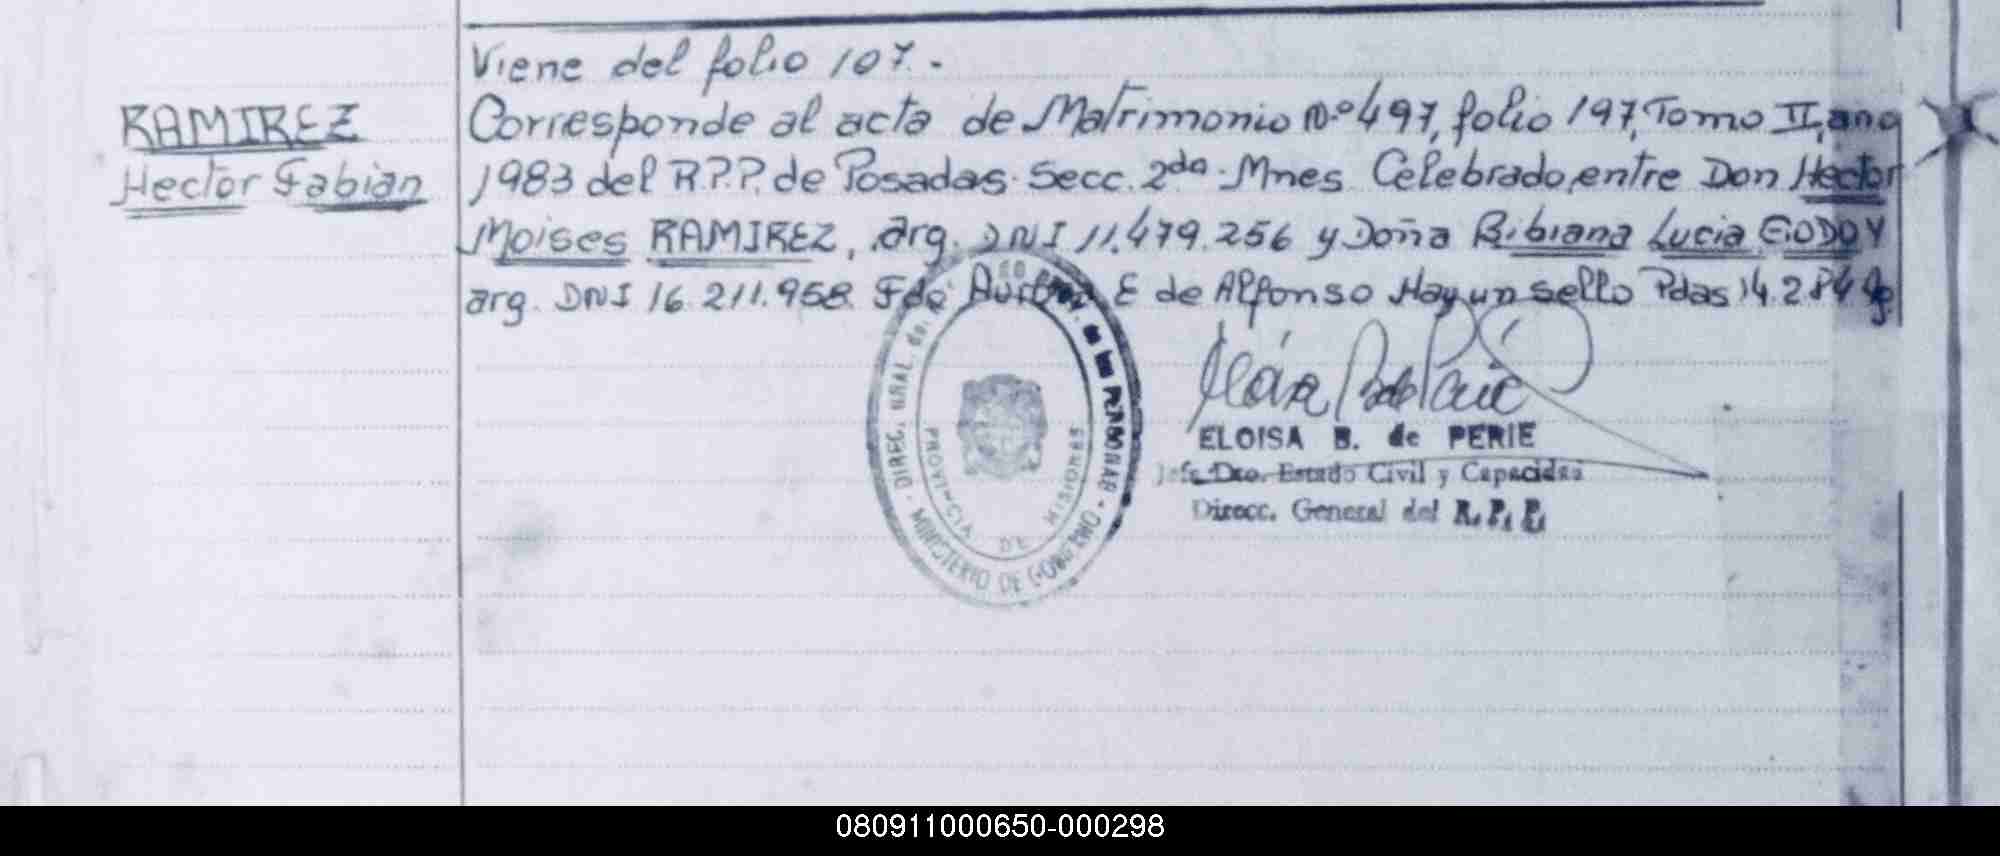 Viene del folio 107.-
RAMIREZ
Hector Fabian
Corresponde al acta de Matrimonio N.º 497, folio 197, Tomo II, año
1983 del R.P.P. de Posadas. Secc. 2da. Mnes. Celebrado, entre Don Hector
Moises RAMIREZ, arg. DNI 11.479.256 y Doña Bibiana Lucia GODOY
arg. DNI 16.211.958. Fdo E de Alfonso Hay un sello Pdas 14.2.84
DIREC. GRAL. del REG. PROV. de las PERSONAS
MINISTERIO DE GOBIERNO
PROVINCIA DE MISIONES
ELOISA B. de PERIE
Jefe Dto. Estado Civil y Capacidad
Direcc. General del R. P. P.
080911000650-000298